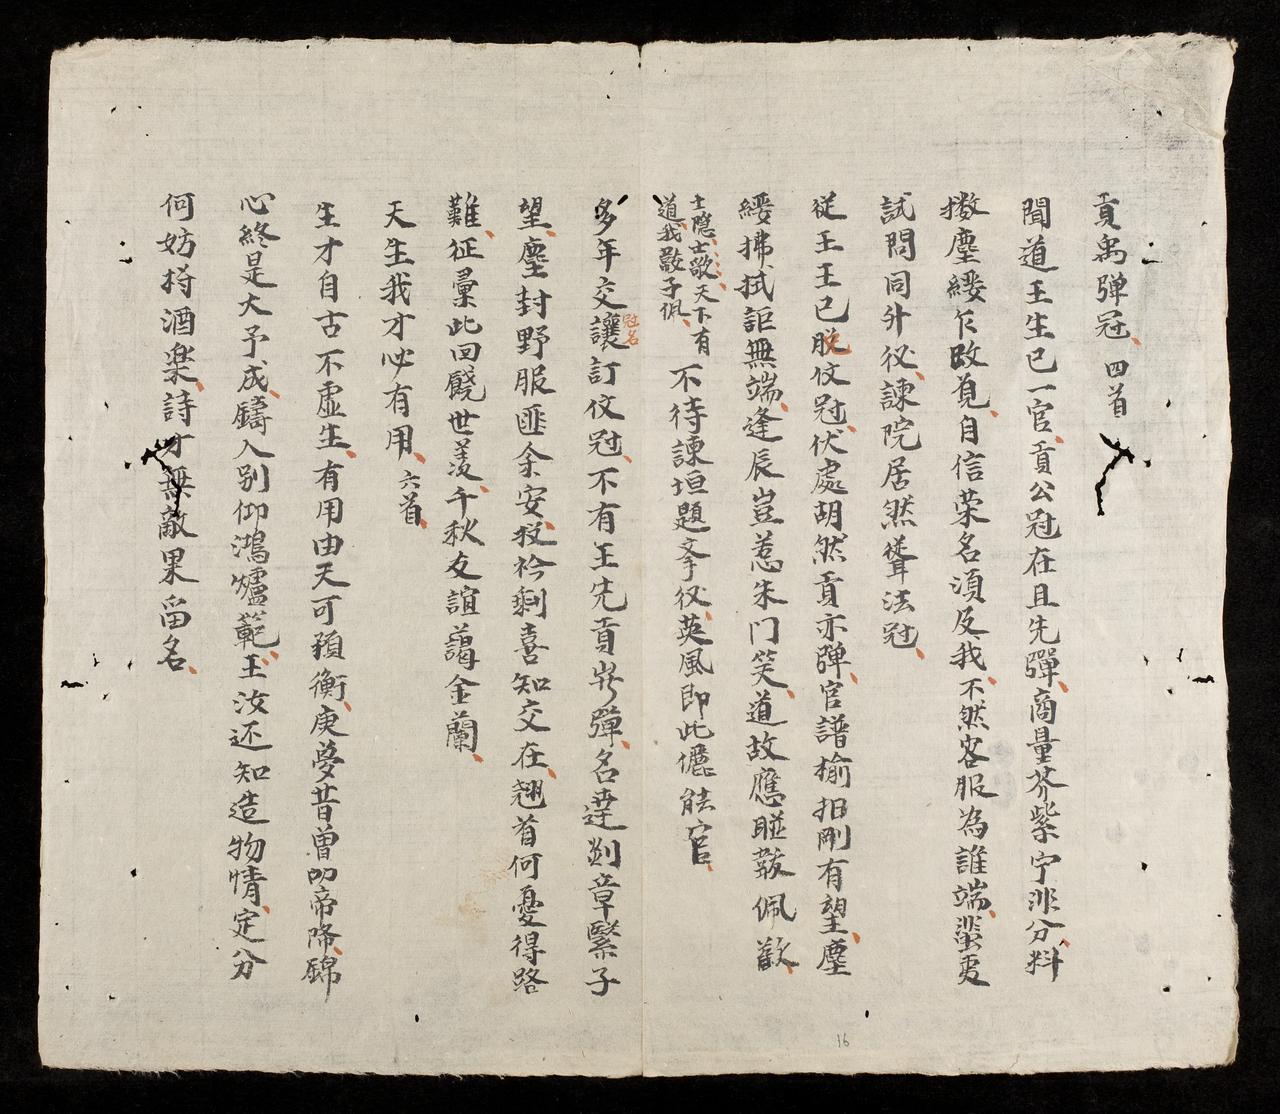 貢禹彈冠 四首
聞道王生已一官貢公冠在且先彈商量芥紫宁非分料
撒塵緩乍改覓自信荣名須反我不然客服為誰端蜚更
試問同升役諫院居然聳法冠
從王王已脱伩冠伏處胡然貢亦彈官譜揄招剛有望塵
緌拂拭詎無端逢辰豈惹朱门笑道故應聯韍佩歡
士隠士歌天下有
道我敲子佩
不待諫垣題夆役英風即此儷能官
多年交讓訂伩冠不有王先貢岁彈名達剡章緊子
冠名
望塵封野服匪余安拔衿剩喜知交在翘首何憂得路
難征彙此回饒世羙千秋友誼藹金蘭
天生我才必有用 六首
生才自古不虛生有用由天可預衡庚夢昔曾叩帝降錦
心終是大予成鑄入别仰鴻爐範玉汝还知造物情定分
何妨持酒楽詩才無敵果留名
16